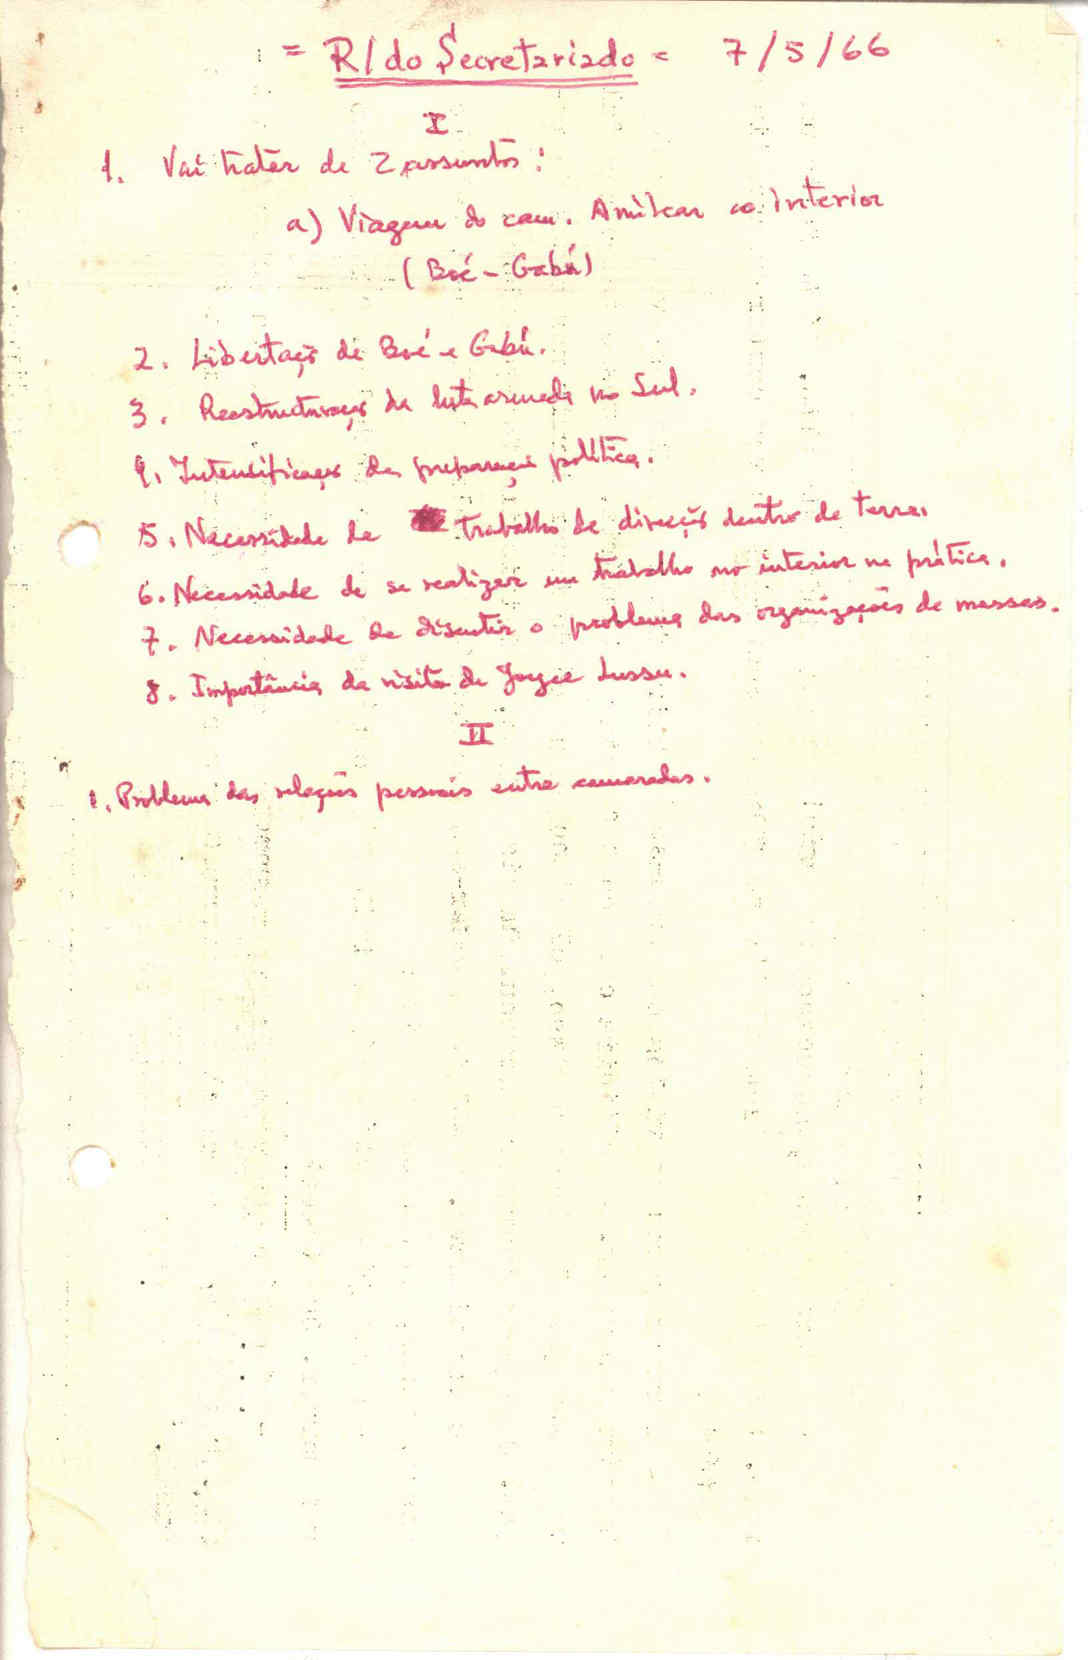 = R/do Secretariado = 7/5/66
I
1. Vai tratar de 2 assuntos:
a) Viagem do cam. Amílcar ao Interior
(Boé - Gabú)
2. Libertação de Boé e Gabú.
3. Reestructuração da luta armada no Sul.
4. Intensificação da preparação política.
5. Necessidade de trabalho de direcção dentro da terra.
6. Necessidade de se realizar um trabalho no interior na prática.
7. Necessidade de discutir o problema das organizações de massas.
8. Importância da visita de Joyce Lussu.
II
1. Problema das relações pessoais entre camaradas.